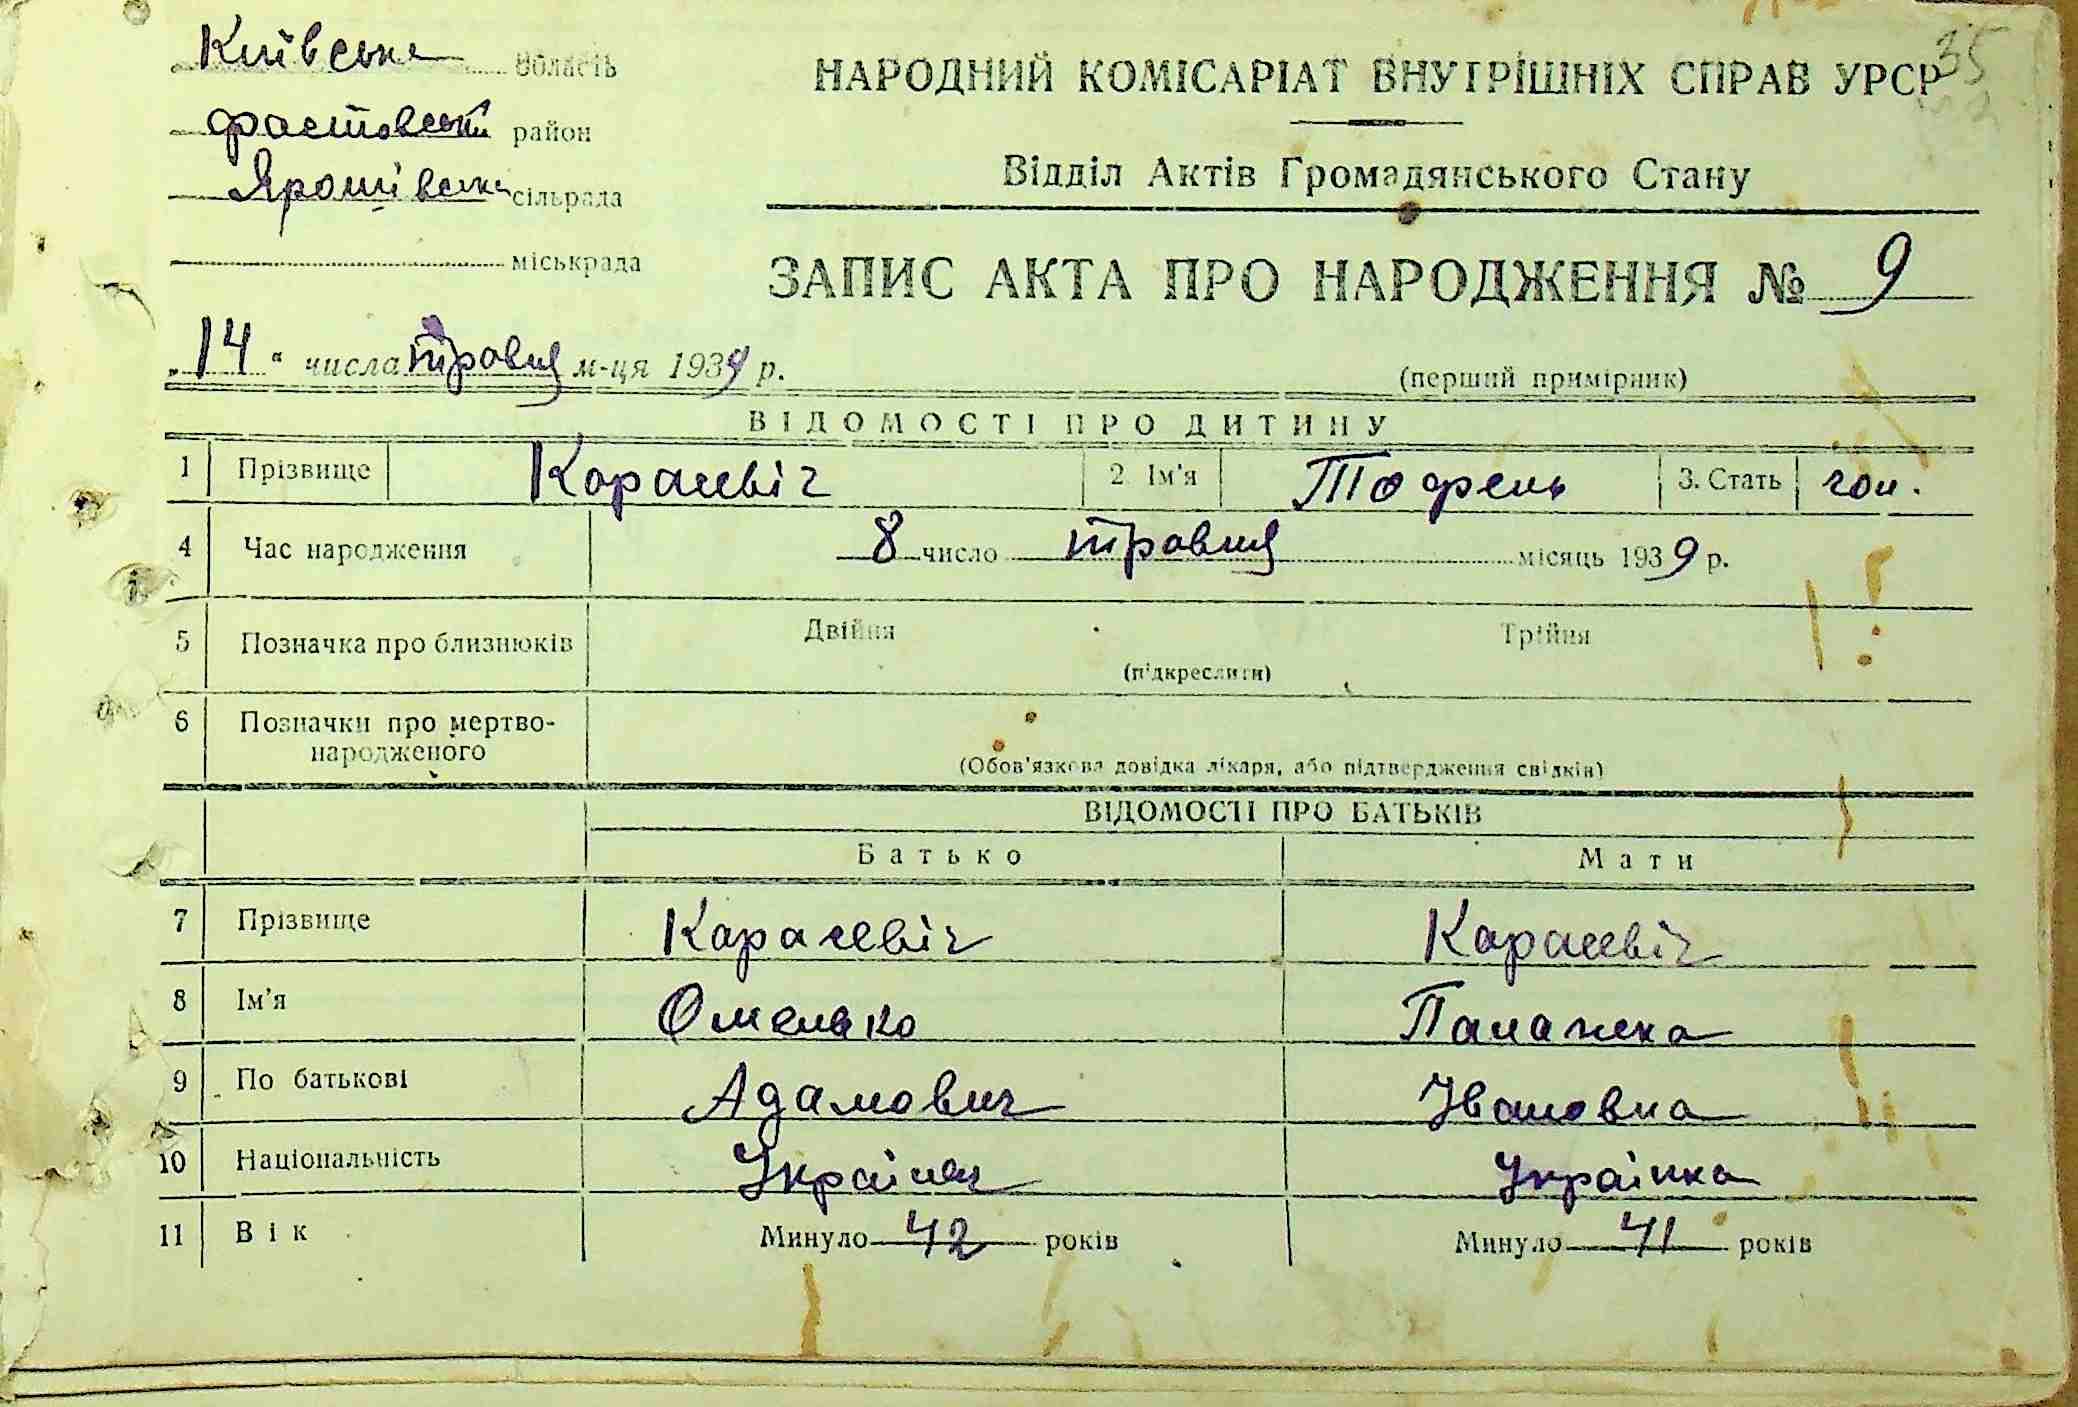 35
Київська область
НАРОДНИЙ КОМІСАРІАТ ВНУТРІШНІХ СПРАВ УРСР
фастовський район
Відділ Актів Громадянського Стану
Ярошівська сільрада
міськрада
ЗАПИС АКТА ПРО НАРОДЖЕННЯ № 9
„14“ числа травня м-ця 1939 р.
(перший примірник)
ВІДОМОСТІ ПРО ДИТИНУ
1 Прізвище Карасевіч 2 Ім'я 3. Стать чол.
4 Час народження 8 число травня місяць 1939 р.
5 Позначка про близнюків Двійня Трійня
(підкреслити)
6 Позначки про мертво-
народженого
(Обов'язкова довідка лікаря, або підтвердження свідків)
ВІДОМОСТІ ПРО БАТЬКІВ
Батько Мати
7 Прізвище Карасевіч Карасевіч
8 Ім'я Омелько Палажка
9 По батькові Адамович Івановна
10 Національність Українец Українка
11 Вік Минуло 42 років Минуло 41 років